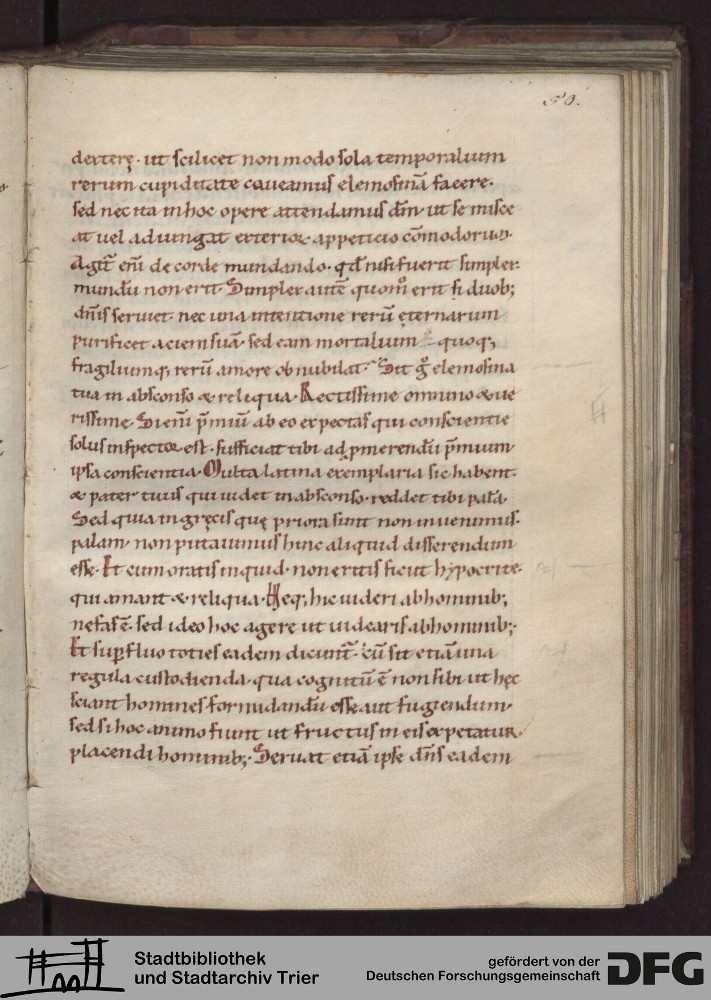 50.
dexterę. ut scilicet non modo sola temporalium
rerum cupiditate caueamus elemosinā facere.
sed nec ita in hoc opere attendamus dm̄ ut se misce
at uel adiungat exterioꝝ appeticio cōmodorum.
Agit̄ eni̅ de corde mundando. qđ nisi fuerit simplex
mundū non erit. Simplex autē quom̊ erit si duob;
dn̄is seruiet. nec una intentione rerū ęternarum
purificet aciem suā. sed eam mortalium quoq;
fragiliumq; rerū amore obnubilat. Sit g̊ elemosina
tua in absconso & reliqua. Rectissime omnino & ue
rissime. Si eni̅ p̄miū ab eo expectas qui conscientie
solus inspector est. sufficiat tibi ad ꝓmerendū p̄mium
ipsa conscientia. Multa latina exemplaria sic habent.
& pater tuus qui uidet in absconso. reddet tibi palā.
Sed quia in gręcis quę priora sunt non inuenimus.
palam. non putauimus hinc aliquid disserendum
esse. Et cum oratis inquid. non eritis sicut hypocrite.
qui amant & reliqua. Neq; hic uideri ab hominib;
nefas ē. sed ideo hoc agere ut uidearis ab hominib;.
Et suꝑfluo toties eadem dicunt̄. cū sit etiā una
regula custodienda. qua cognitū ē non sibi ut hęc
sciant homines formidandū esse aut fugiendum.
sed si hoc animo fiunt ut fructus in eis expetatur
placendi hominib;. Seruat etiā ipse dn̄s eadem
Stadtbibliothek
und Stadtarchiv Trier
gefördert von der
Deutschen Forschungsgemeinschaft
DFG